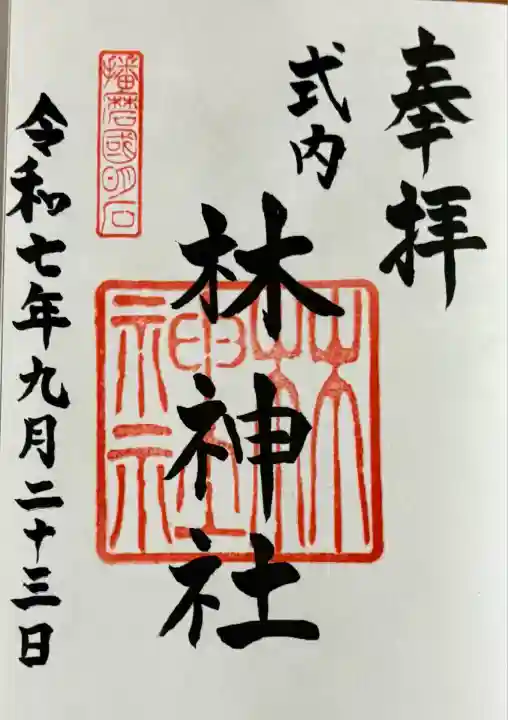 奉拝
式内
林神社
播磨國明石
林神社
令和七年九月二十三日